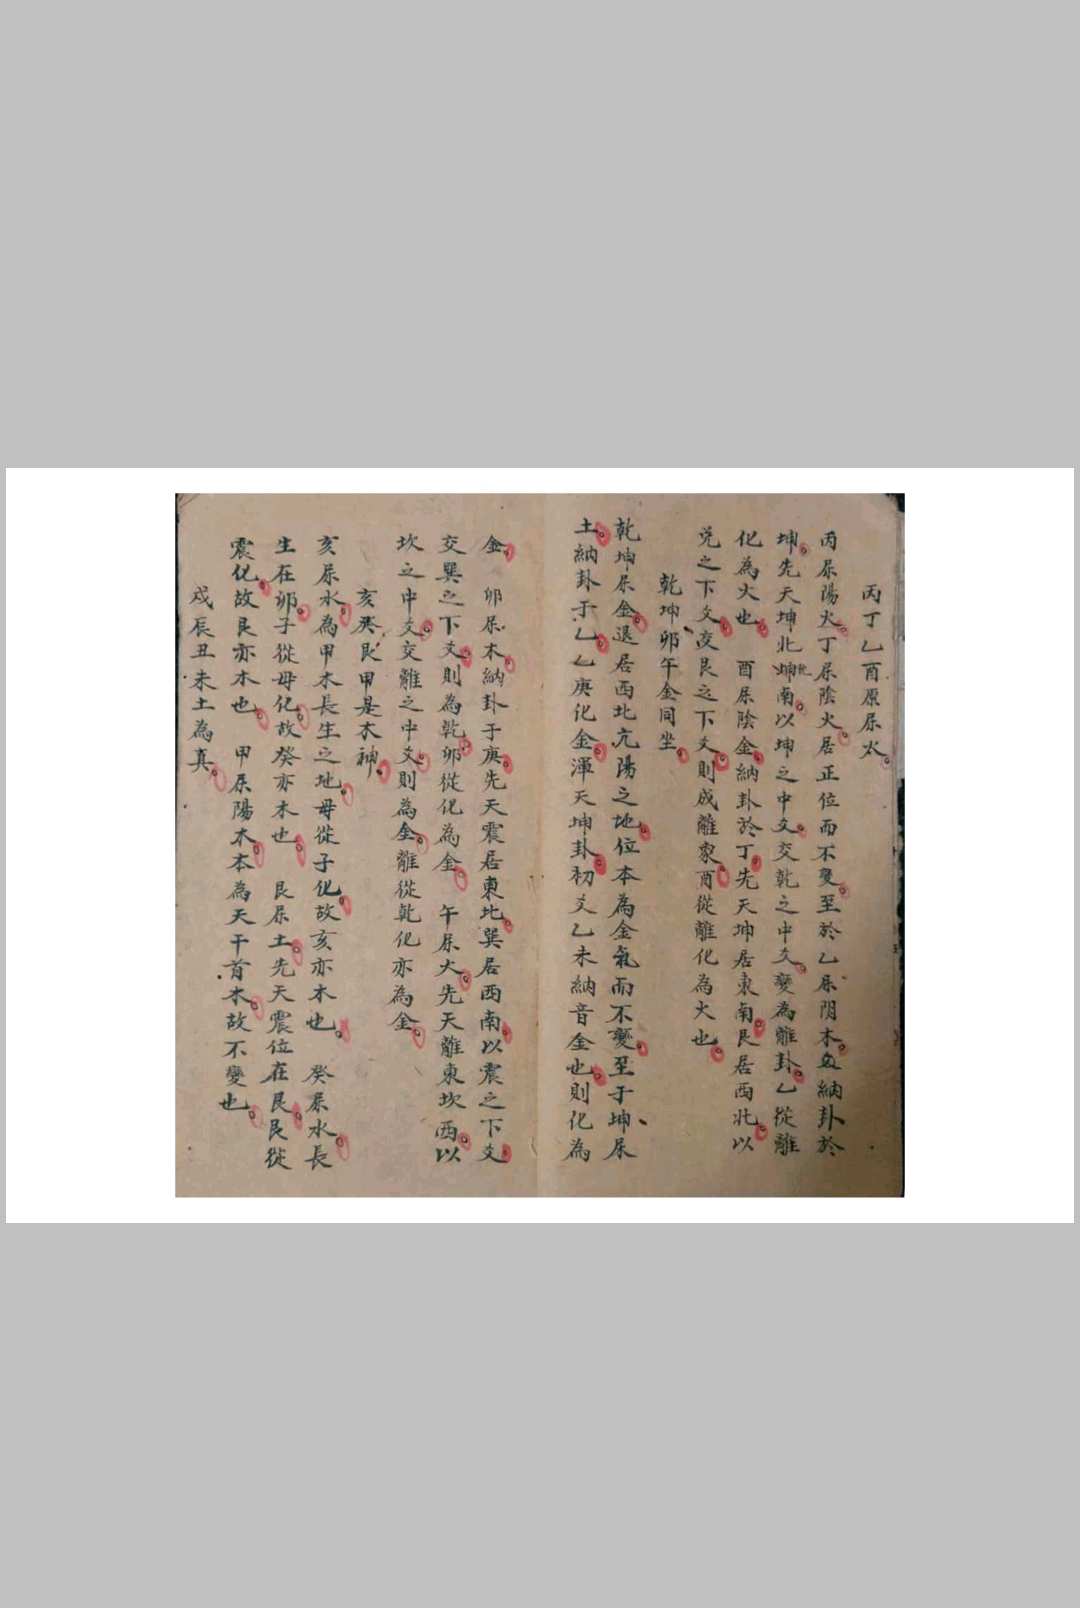 丙丁乙酉原屬火
丙屬陽火丁屬陰火居正位而不變至於乙屬阴木納卦於
坤先天坤北南以坤之中爻交乾之中爻變為離卦乙從離
化為火也 酉屬陰金納卦於丁先天坤居東南艮居西北以
兌之下爻交艮之下爻則成離象酉從離化為火也
乾坤卯午金同坐
乾坤屬金退居西北亢陽之地位本為金氣而不變至于坤屬
土納卦于乙乙庚化金渾天坤卦初爻乙未納音金也則化為
金 卯屬木納卦于庚先天震居東北巽居西南以震之下爻
交巽之下爻則為乾卯從化為金 午屬火先天離東坎西以
坎之中爻交離之中爻則為金離從乾化亦為金
亥癸艮甲是木神
亥屬水為甲木長生之地母從子化故亥亦木也 癸屬水長
生在卯子從母化故癸亦木也 艮屬土先天震位在艮艮從
震化故艮亦木也 甲屬陽木本為天干首木故不變也
戍辰丑未土為真